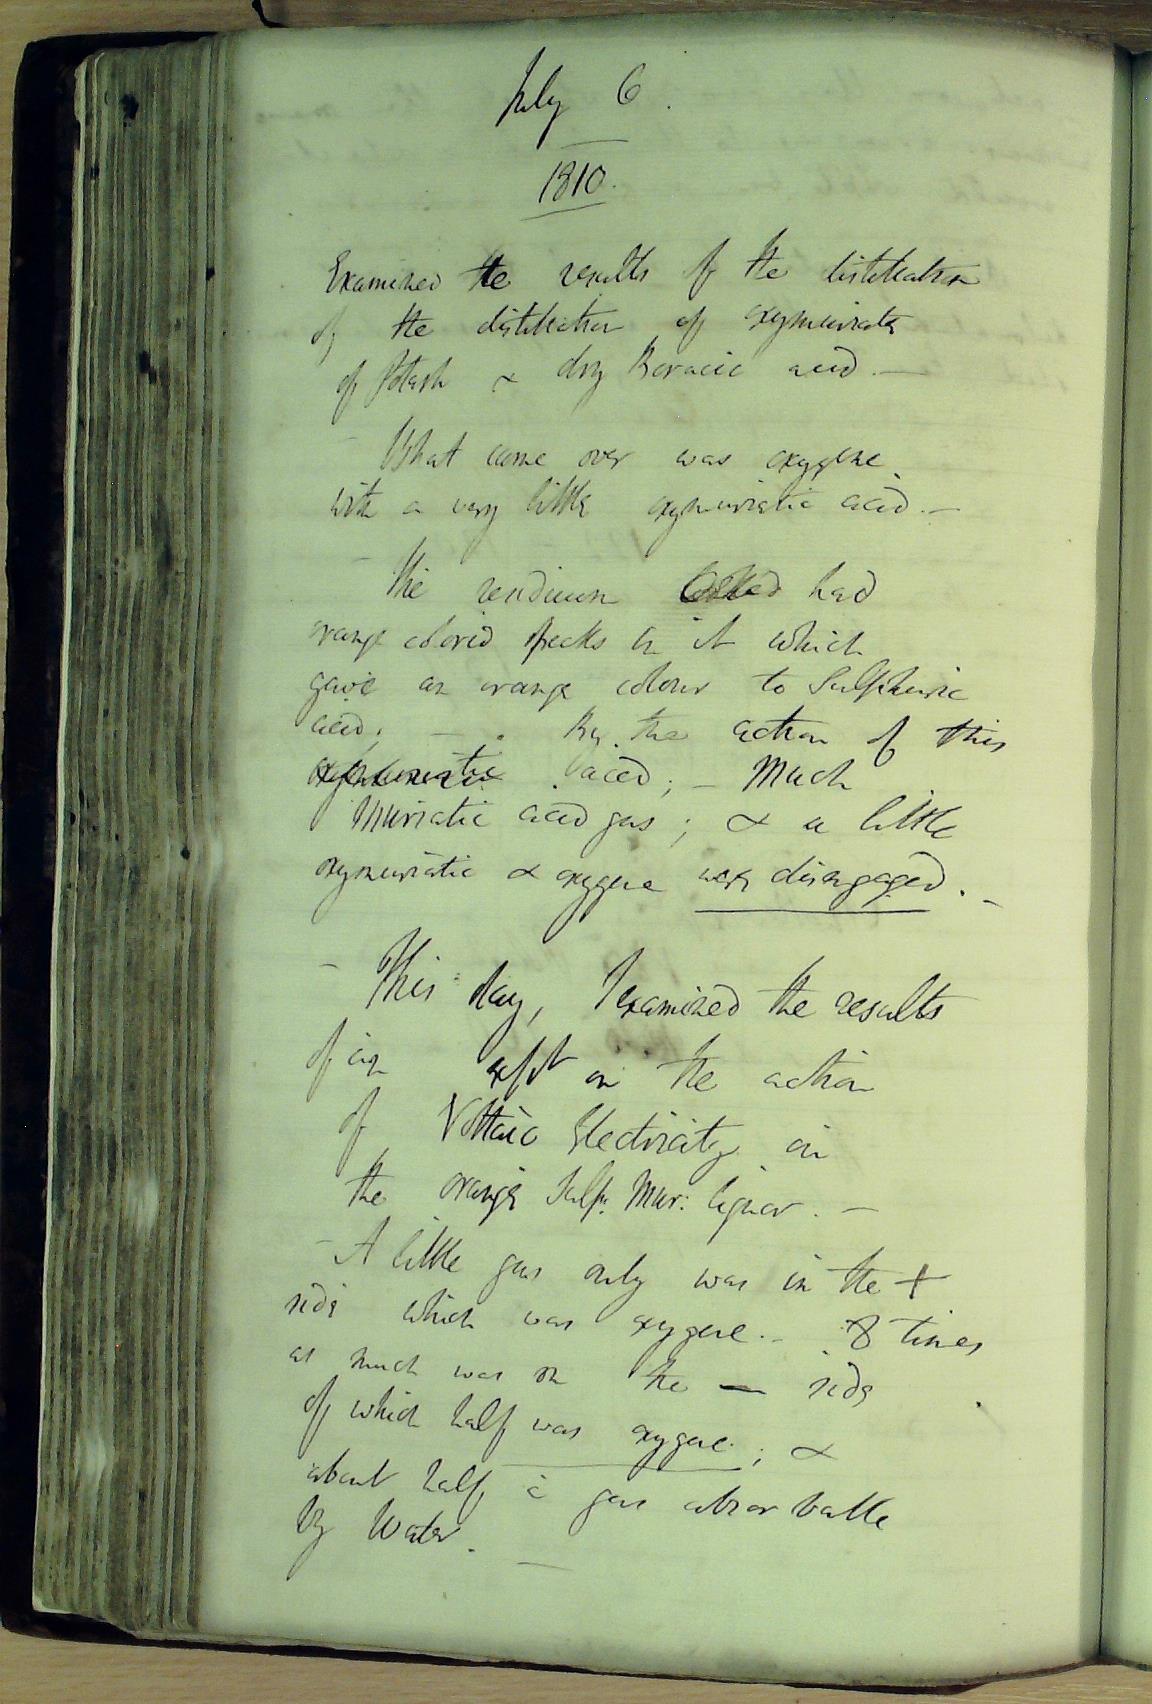 July 6.
1810.
Examined the results of the distillation
of the distillation of oxymuriate
of Potash & dry Boracic acid. —
What came over was oxygene
with a very little oxymuriatic acid. —
The residuum had
orange colored specks in it which
gave an orange colour to Sulphuric
acid; — . By the action of this
acid; — Much
Muriatic acid gas; & a little
oxymuriatic & oxygene were disengaged. —
— This day, I examined the results
of an expt on the action
of Voltaic Electricity on
the orange Sulp: Mur: liquor. —
— A little gas only was in the +
side which was oxygene. — 8 times
as much was on the — side
of which half was oxygene; &
about half a gas absorbable
by Water. —